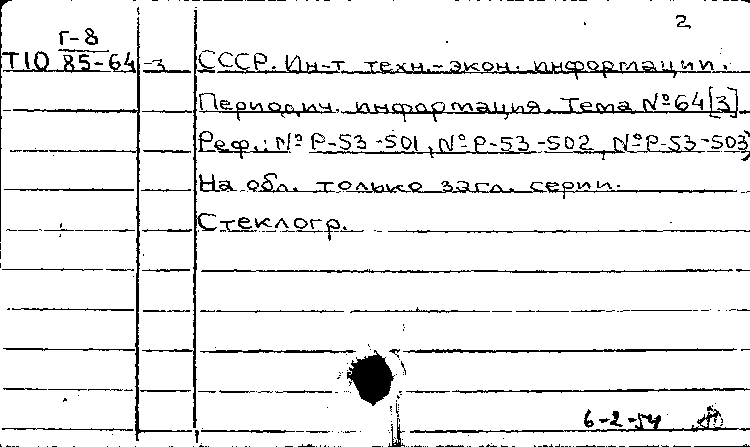 2
Г-8
Т10 85-64 -3 СССР. Ин-т техн.-экон. информации.
Периодич. информация. Тема №64[3].
Реф.: №Р-53-501, №Р-53-502, №Р-53-503
На обл. только загл. серии.
Стеклогр.
6-2-54